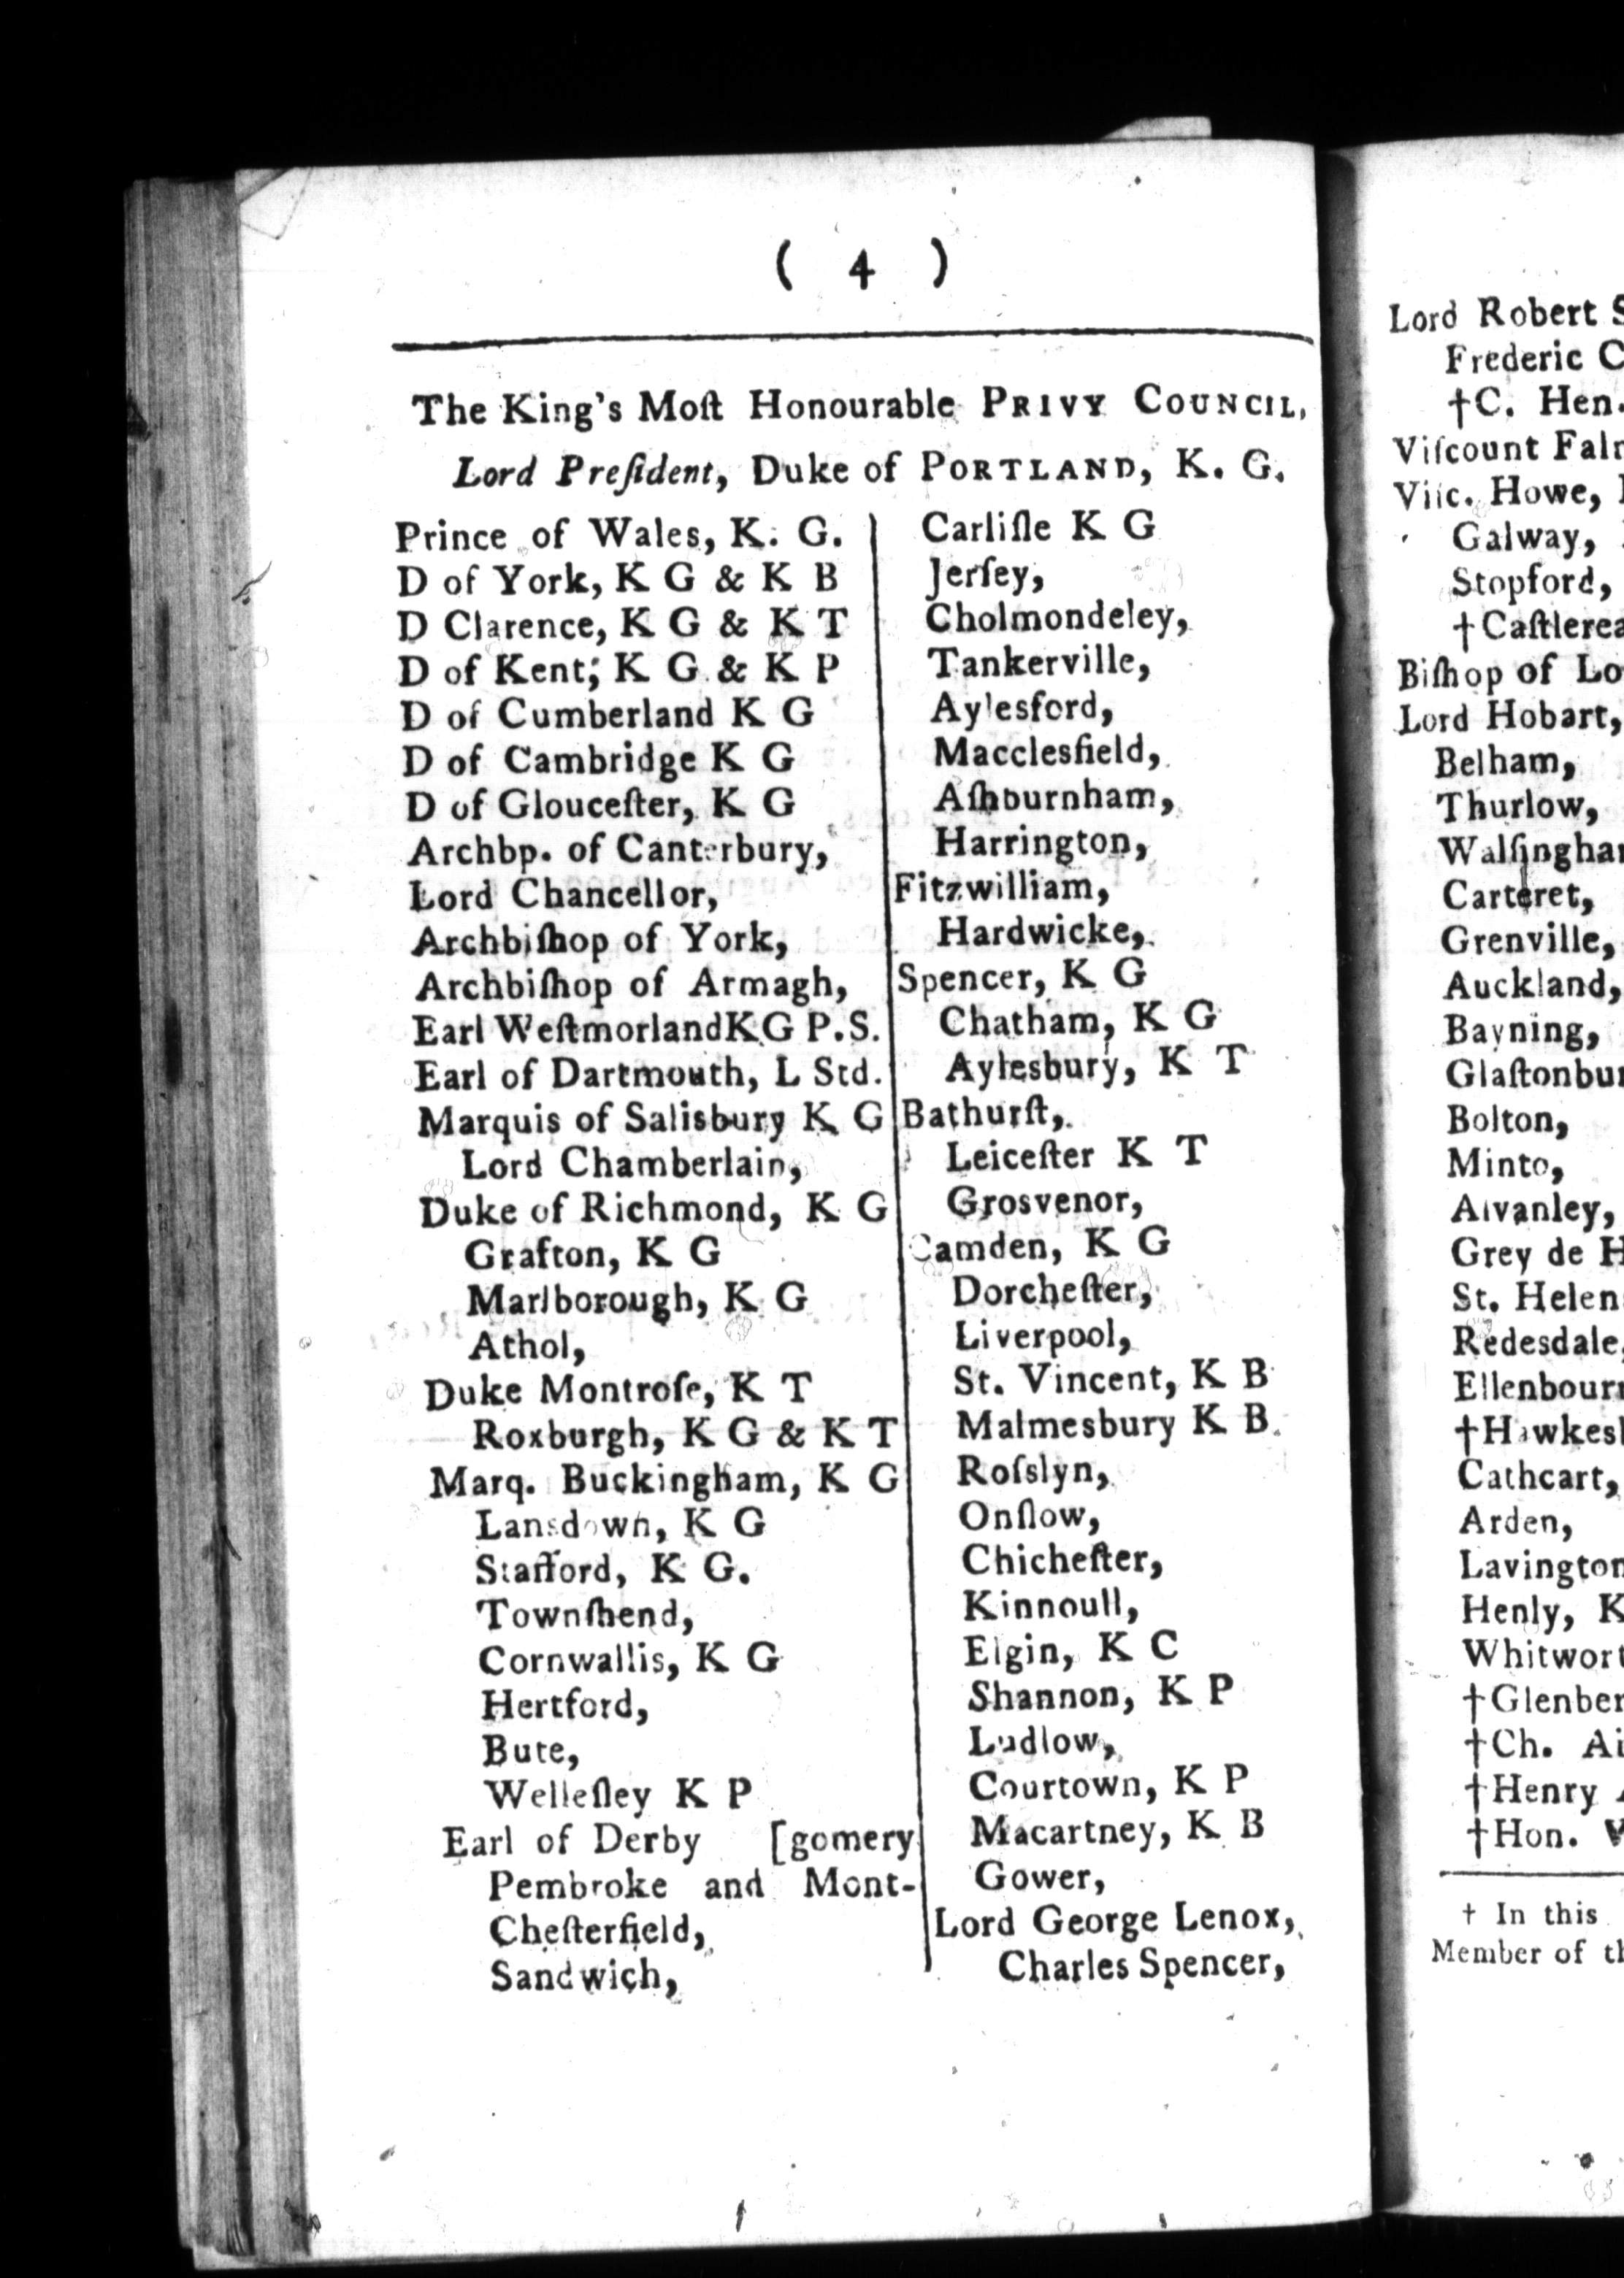 ( 4 )
The King's Moſt Honourable PRIVY COUNCIL,
Lord Preſident, Duke of PORTLAND, K. G.
Prince of Wales, K. G.
D of York, K G & K B
D Clarence, K G & K T
D of Kent; K G & K P
D of Cumberland K G
D of Cambridge K G
D of Glouceſter, K G
Archbp. of Canterbury,
Lord Chancellor,
Archbiſhop of York,
Archbiſhop of Armagh,
Earl WeſtmorlandKG P.S.
Earl of Dartmouth, L Std.
Marquis of Salisbury K G
Lord Chamberlain,
Duke of Richmond, K G
Grafton, K G
Marlborough, K G
Athol,
Duke Montroſe, K T
Roxburgh, K G & K T
Marq. Buckingham, K G
Lansdown, K G
Stafford, K G.
Townſhend,
Cornwallis, K G
Hertford,
Bute,
Welleſley K P
Earl of Derby [gomery
Pembroke and Mont-
Cheſterfield,
Sandwich,
Carliſle K G
Jerſey,
Cholmondeley,
Tankerville,
Aylesford,
Macclesfield,
Aſhburnham,
Harrington,
Fitzwilliam,
Hardwicke,
Spencer, K G
Chatham, K G
Aylesbury, K T
Bathurſt,
Leiceſter K T
Grosvenor,
Camden, K G
Dorcheſter,
Liverpool,
St. Vincent, K B
Malmesbury K B
Roſslyn,
Onſlow,
Chicheſter,
Kinnoull,
Elgin, K C
Shannon, K P
Ludlow,
Courtown, K P
Macartney, K B
Gower,
Lord George Lenox,
Charles Spencer,
Lord Robert S
Frederic C
†C. Hen.
Viſcount Falm
Viſc. Howe,
Galway,
Stopford,
†Caſtlerea
Biſhop of Lo
Lord Hobart,
Belham,
Thurlow,
Walſingha
Carteret,
Grenville,
Auckland,
Bayning,
Glaſtonbu
Bolton,
Minto,
Alvanley,
Grey de H
St. Helen
Redesdale,
Ellenbour
†Hawkes
Cathcart,
Arden,
Lavington
Henly, K
Whitwort
†Glenber
†Ch. Ai
†Henry
†Hon.
† In this
Member of th